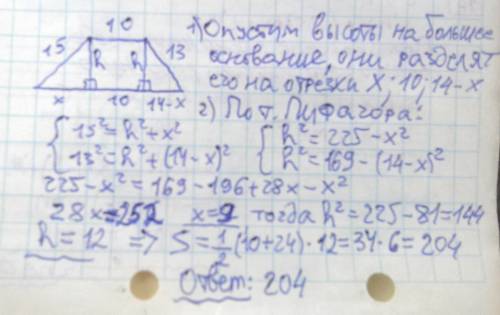 10
15 h h 13
x 10 14-x
1) Опустим высоты на большее
основание, они разделят
его на отрезки x; 10; 14-x
2) По т. Пифагора:
15² = h² + x² h² = 225 - x²
13² = h² + (14-x)² h² = 169 - (14-x)²
225 - x² = 169 - 196 + 28x - x²
28x = 252 x = 9 тогда h² = 225 - 81 = 144
h = 12 => S = 1/2 (10+24) · 12 = 34 · 6 = 204
Ответ: 204